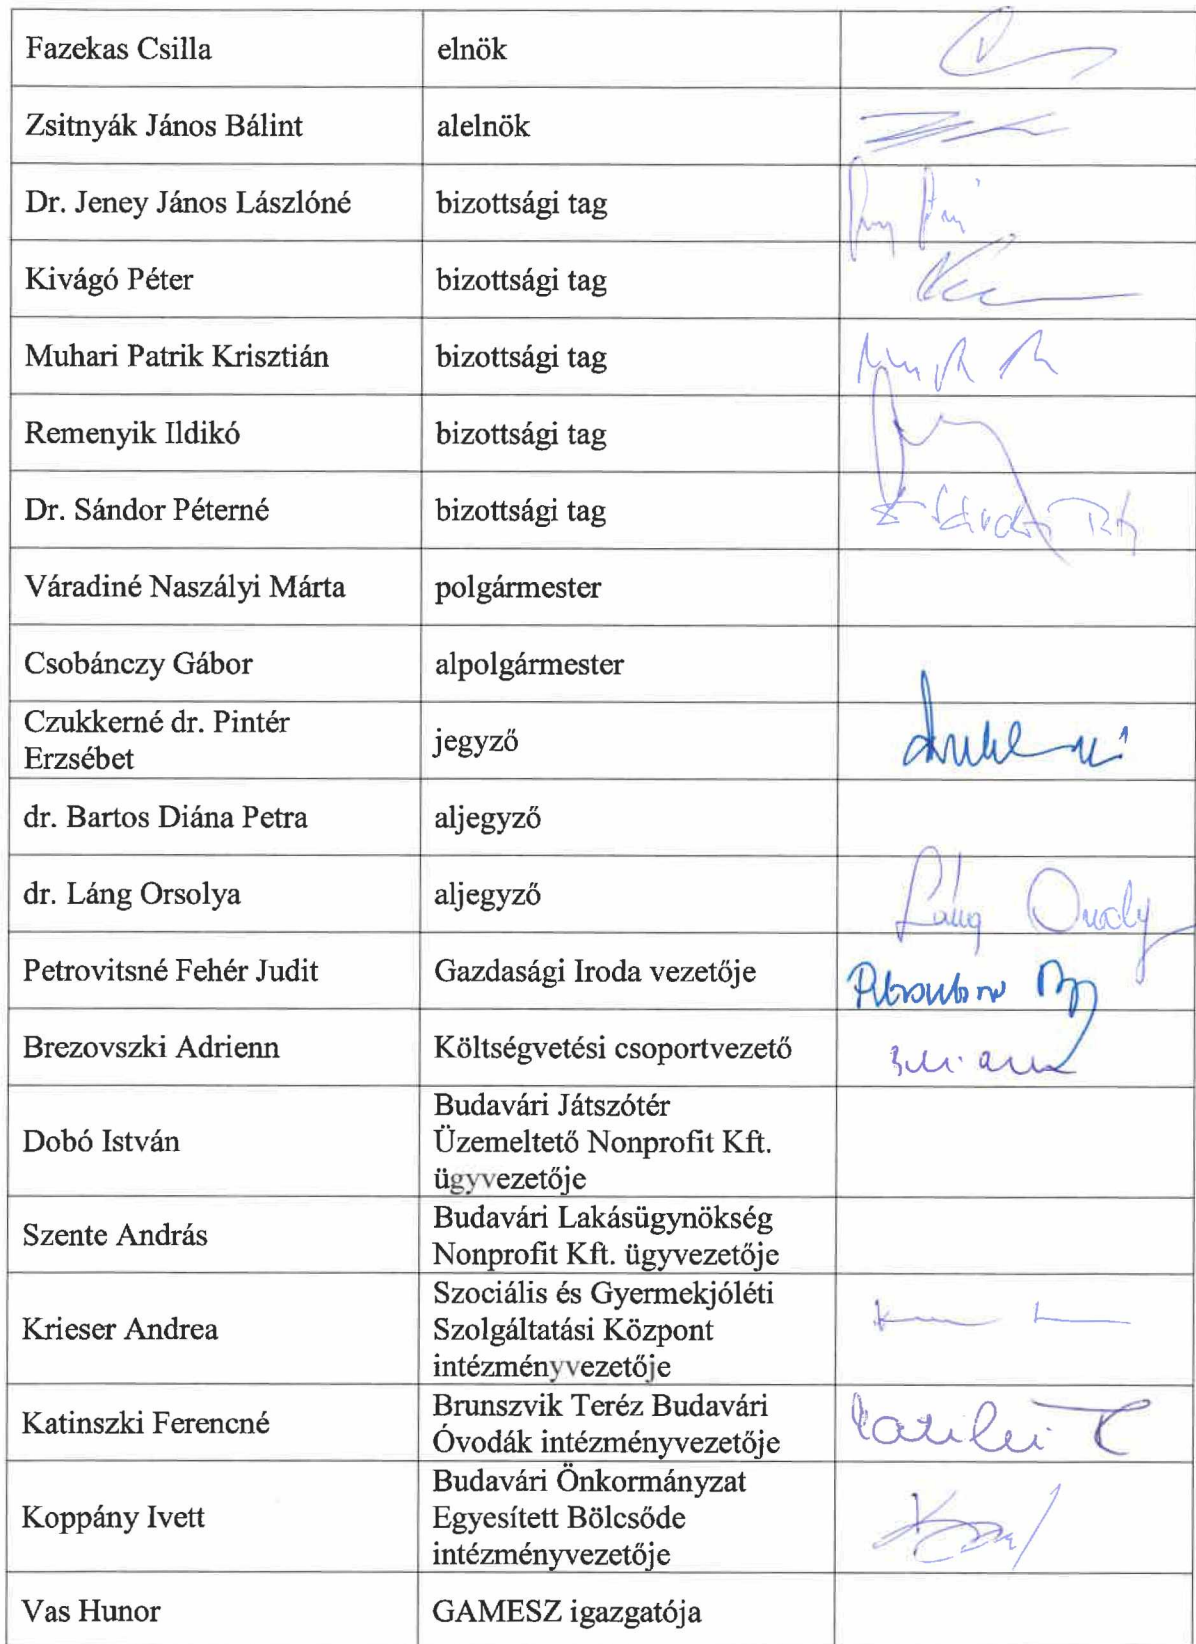 Fazekas Csilla elnök
Zsitnyák János Bálint alelnök
Dr. Jeney János Lászlóné bizottsági tag
Kivágó Péter bizottsági tag
Muhari Patrik Krisztián bizottsági tag
Remenyik Ildikó bizottsági tag
Dr. Sándor Péterné bizottsági tag
Váradiné Naszályi Márta polgármester
Csobánczy Gábor alpolgármester
Czukkerné dr. Pintér
Erzsébet
jegyző
dr. Bartos Diána Petra aljegyző
dr. Láng Orsolya aljegyző
Láng
Petrovitsné Fehér Judit Gazdasági Iroda vezetője
Brezovszki Adrienn Költségvetési csoportvezető
Dobó István
Budavári Játszótér
Üzemeltető Nonprofit Kft.
ügyvezetője
Szente András
Budavári Lakásügynökség
Nonprofit Kft. ügyvezetője
Krieser Andrea
Szociális és Gyermekjóléti
Szolgáltatási Központ
intézményvezetője
Katinszki Ferencné
Brunszvik Teréz Budavári
Óvodák intézményvezetője
Koppány Ivett
Budavári Önkormányzat
Egyesített Bölcsőde
intézményvezetője
Vas Hunor GAMESZ igazgatója